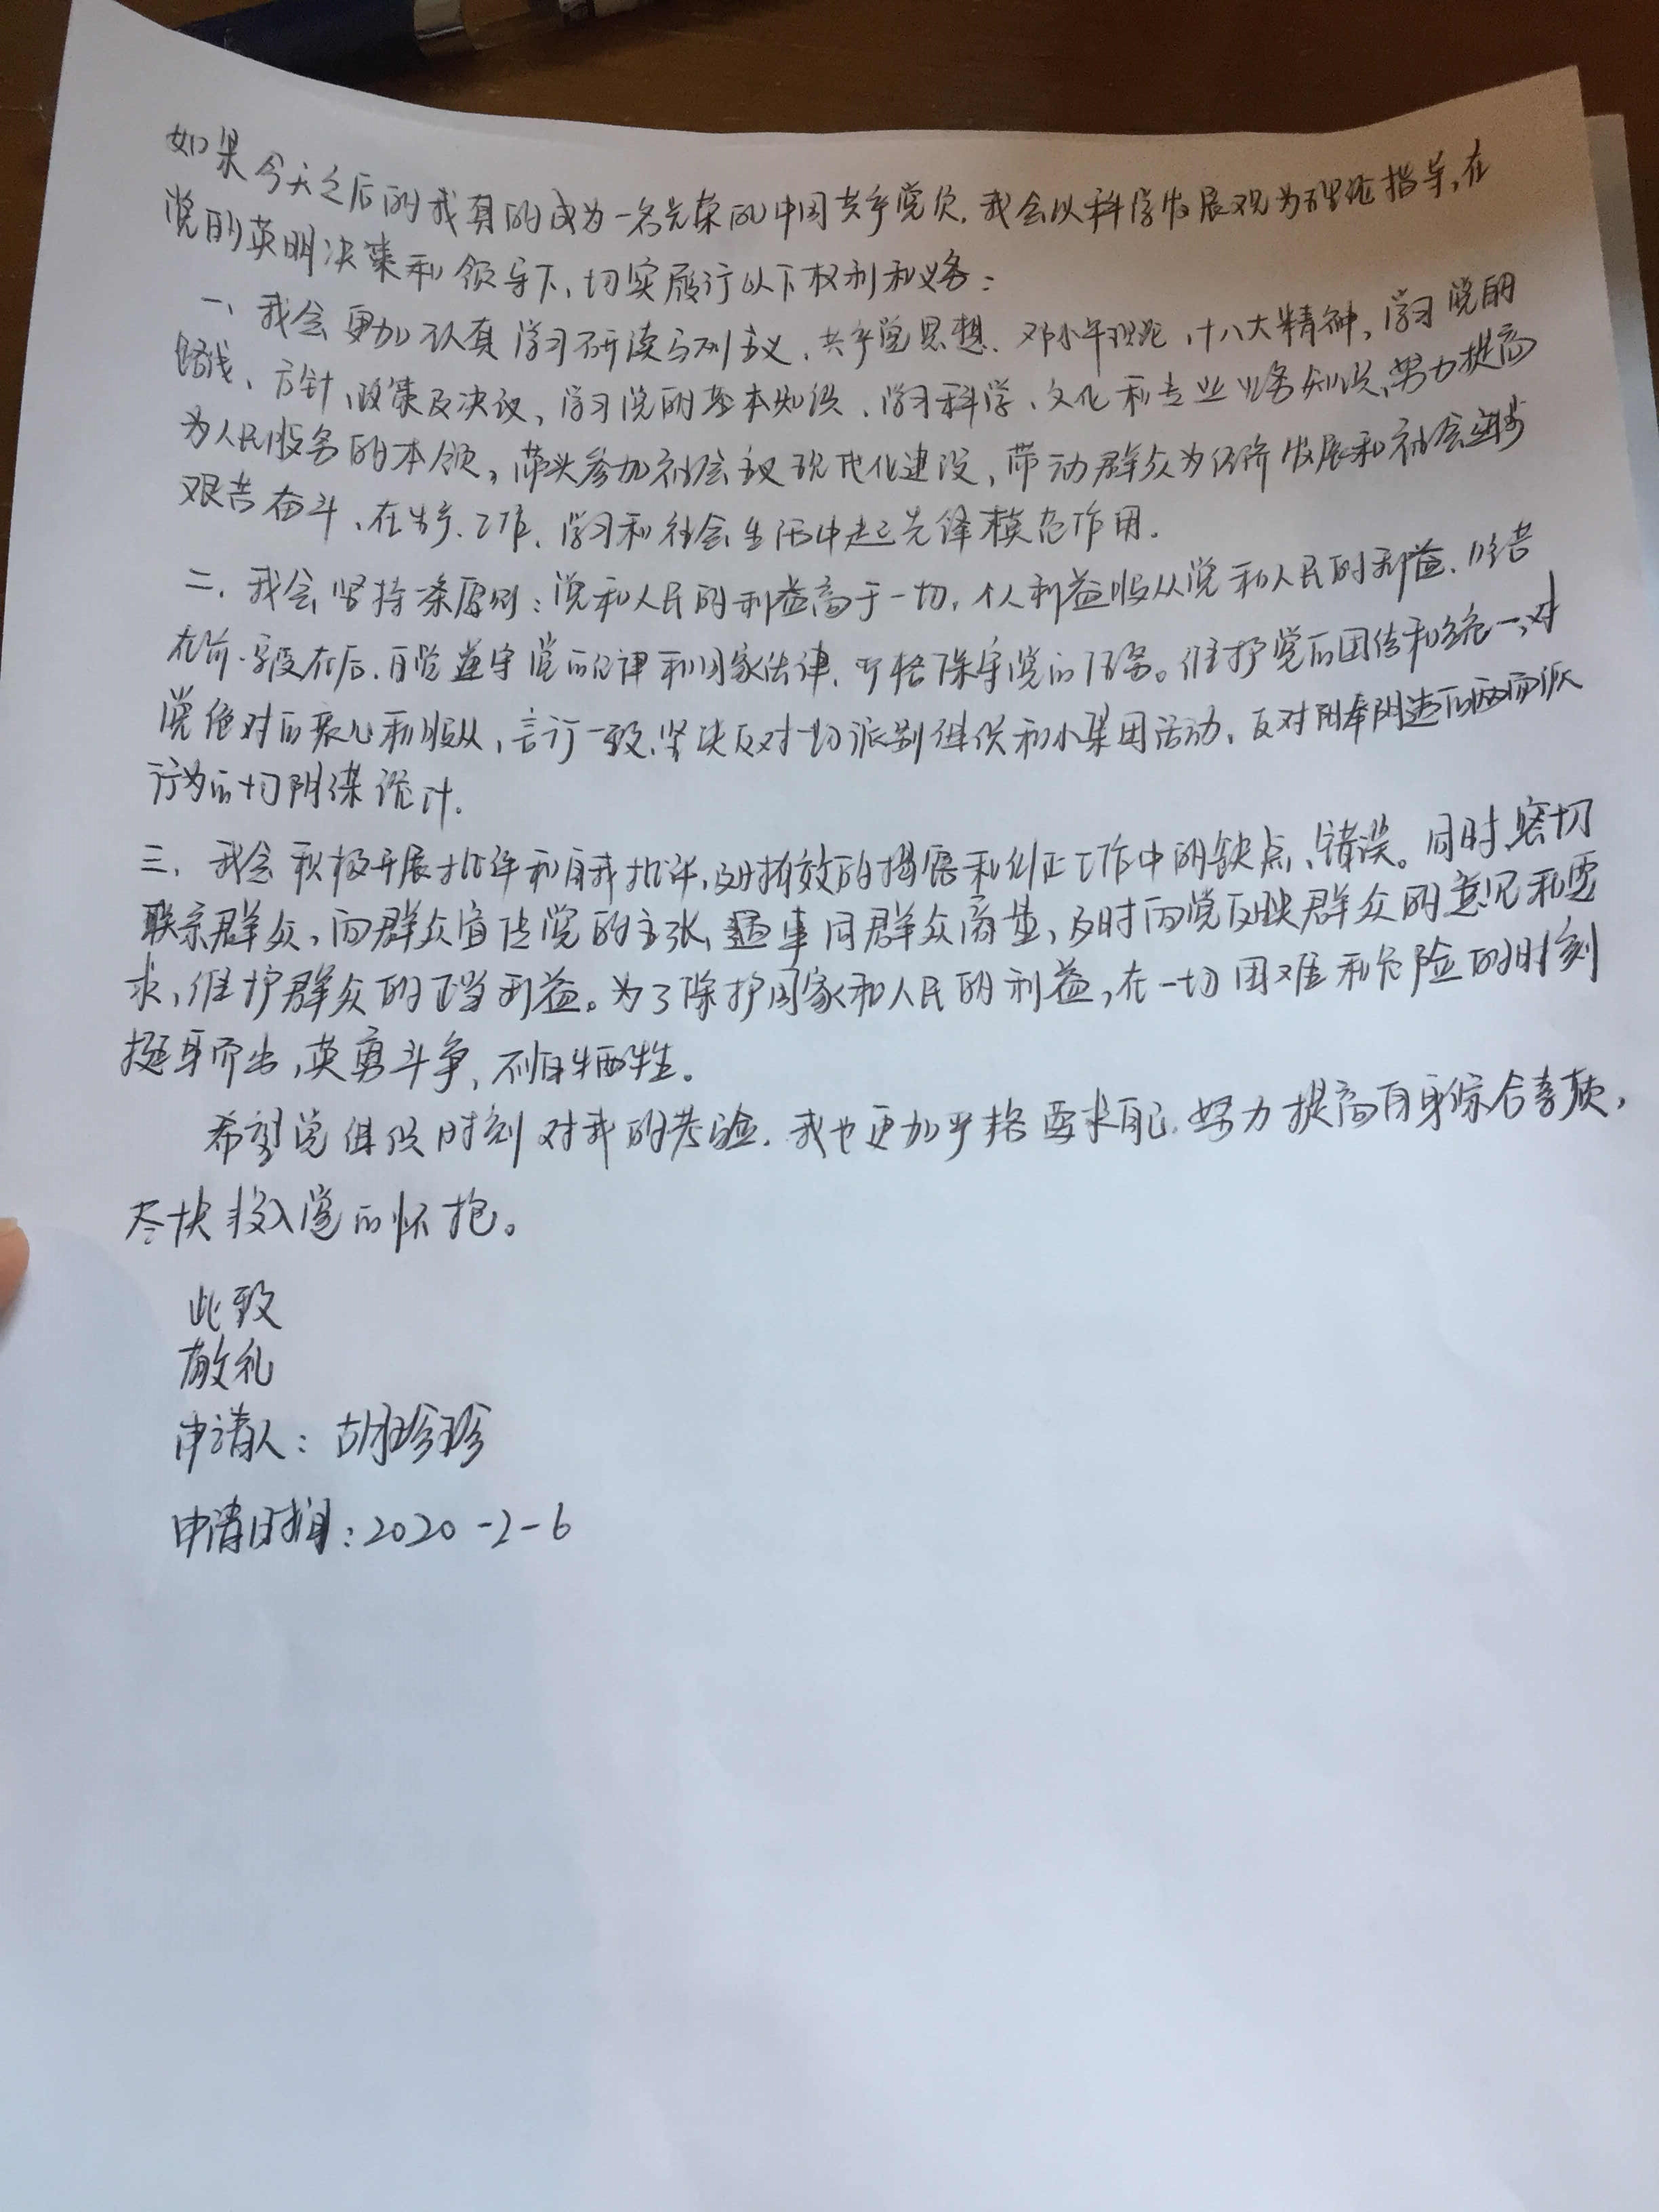 如果今天之后的我真的成为一名光荣的中国共产党员,我会以科学发展观为理论指导,在
党的英明决策和领导下,切实履行以下权利和义务:
一、我会更加认真学习研读马列主义、共产党思想、邓小平理论,十八大精神,学习党的
路线、方针、政策及决议,学习党的基本知识、学习科学、文化和专业业务知识,努力提高
为人民服务的本领,带头参加社会主义现代化建设,带动群众为经济发展和社会进步
艰苦奋斗,在生产、工作、学习和社会生活中起先锋模范作用。
二、我会坚持一条原则:党和人民的利益高于一切,个人利益服从党和人民的利益,吃苦
在前,享受在后,自觉遵守党的纪律和国家法律,严格保守党的。维护党的团结和统一,对
党绝对的衷心和服从,言行一致,坚决反对一切派别组织和小集团活动,反对阴奉阴违的两面派
行为的一切阴谋诡计。
三、我会积极开展批评和自我批评,及时有效的揭露和纠正工作中的缺点、错误。同时,密切
联系群众,向群众宣传党的主张,遇事同群众商量,及时向党反映群众的意见和要
求,维护群众的正当利益。为了保护国家和人民的利益,在一切困难和危险的时刻
挺身而出,英勇斗争,不怕牺牲。
希望党组织时刻对我的考验,我也更加严格要求自己,努力提高自身综合素质,
尽快投入党的怀抱。
此致
敬礼
申请人:胡珍珍
申请时间:2020-2-6